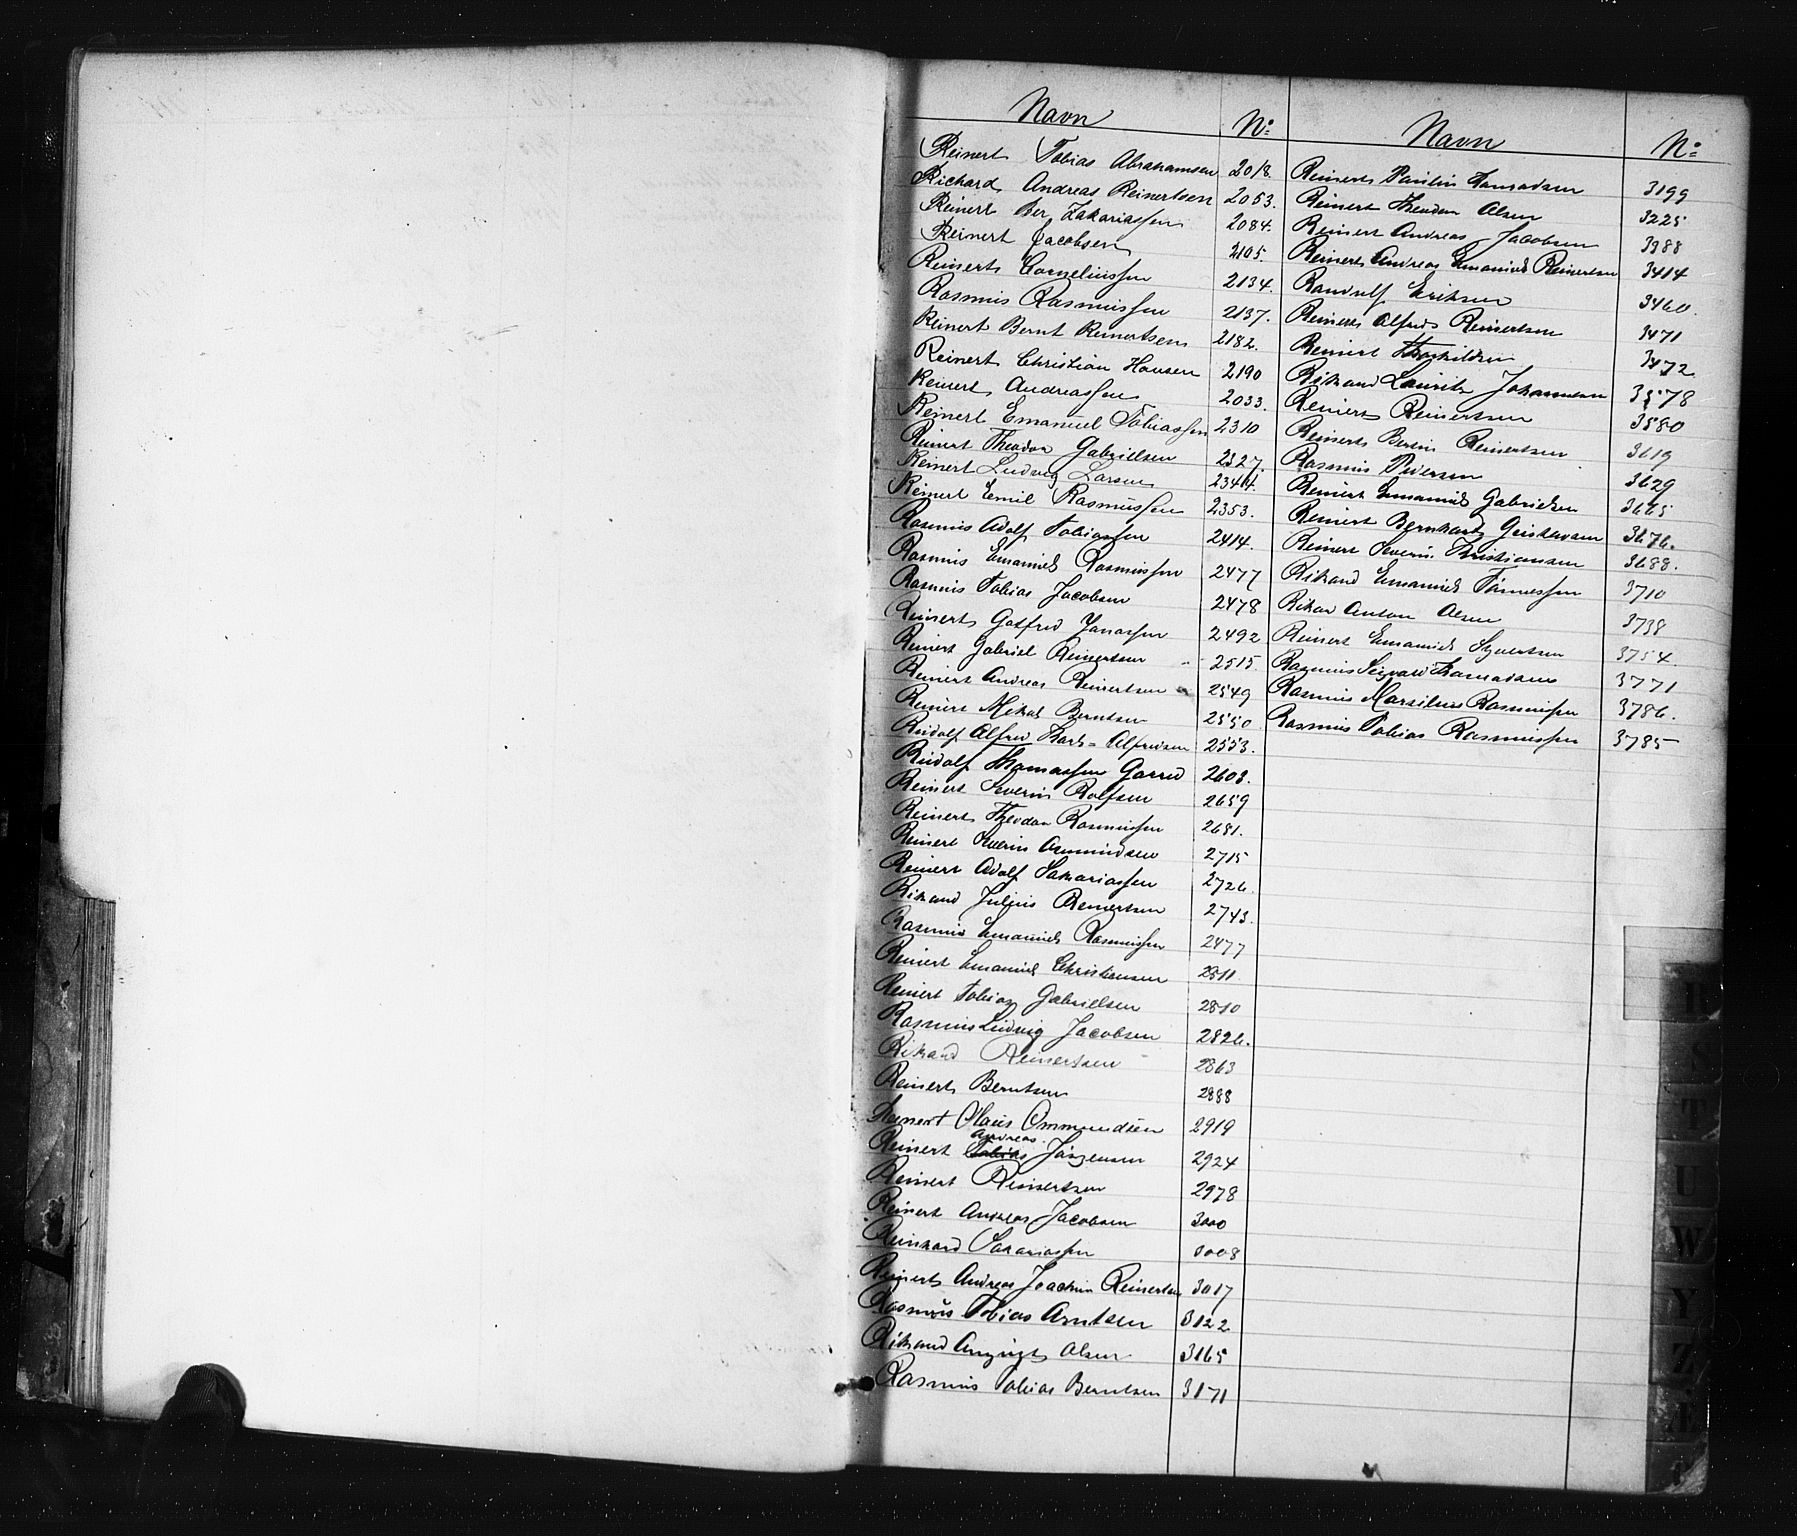 Navn No
Reinert Tobias Abrahamsen 2018.
Richard Andreas Reinertsen 2053.
Reinert Ber. Zakariassen 2084.
Reinert Jacobsen 2105.
Reinert Corneliussen 2134.
Rasmus Rasmussen 2137.
Reinert Bernt Reinertsen 2182.
Reinert Christian Hansen 2190
Reinert Andreassen 2033.
Reinert Emanuel Tobiassen 2310
Reinert Theodor Gabrielsen 2327.
Reinert Ludvig Larsen 2344.
Reinert Emil Rasmussen 2353.
Rasmus Adolf Tobiassen 2414.
Rasmus Emanuel Rasmussen 2477
Rasmus Tobias Jacobsen 2478
Reinert Gotfred Jonassen 2492
Reinert Gabriel Reinertsen 2515.
Reinert Andreas Reinertsen 2549
Reinert Mikal Berntsen 2550
Rudolf Alfred Alfredsen 2553.
Rudolf Thomassen Garred 2603.
Reinert Severin Rolfsen 2659
Reinert Theodor Rasmussen 2681.
Reinert Severin Aanundsen 2715
Reinert Adolf Sakariassen 2726.
Rikard Julius Reinertsen 2743.
Rasmus Emanuel Rasmussen 2477
Reinert Emanuel Christensen 2811.
Reinert Tobias Gabrielsen 2810
Rasmus Ludvig Jacobsen 2826.
Rikard Reinertsen 2863
Reinert Berntsen 2888
Reinert Olaus Ommundsen 2919
Andreas.
Reinert Tobias Jørgensen 2924
Reinert Reinertsen 2978
Reinert Andreas Jacobsen 3000
Reinhard Sakariassen 3008
Reinert Andreas Joachim Reinertsen 3017
Rasmus Tobias Arntsen 3122
Rikard August Olsen 3165
Rasmus Tobias Berntsen 3171
Navn No
Reinert Paulin Tomadsen 3199
Reinert Theodor Olsen 3225
Reinert Andreas Jacobsen 3388
Reinert Andreas Emanuel Reinertsen 3414
Randulf Eriksen 3460.
Reinert Alfred Reinertsen 3471
Reinert Thorkildsen 3472
Rikard Lauritz Johannesen 3578
Reinert Reinertsen 3580
Reinert Bertin Reinertsen 3619
Rasmus Pedersen 3629
Reinert Emanuel Gabrielsen 3665
Reinert Bernhard Gustavsen 3676.
Reinert Severin Kristiansen 3688.
Rikard Emanuel Tønnessen 3710
Rikar Anton Olsen 3738
Reinert Emanuel Syvertsen 3754.
Rasmus Sigvard Tomadsen 3771
Rasmus Marselius Rasmussen 3786.
Rasmus Tobias Rasmussen 3785
R
S
T
U
W
Y
Z
Æ